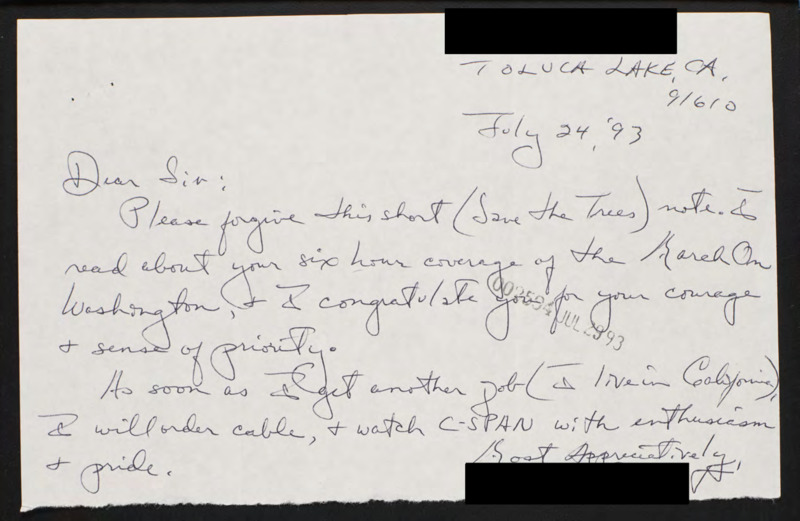 TOLUCA LAKE, CA,
91610
July 24, '93
Dear Sir:
Please forgive this short (Save the Trees) note. I
read about your six hour coverage of the March On
Washington, + I congratulate you for your courage
+ sense of priority.
As soon as I get another job (I live in California),
I will order cable, + watch C-SPAN with enthusiasm
+ pride.
Most Appreciatively,